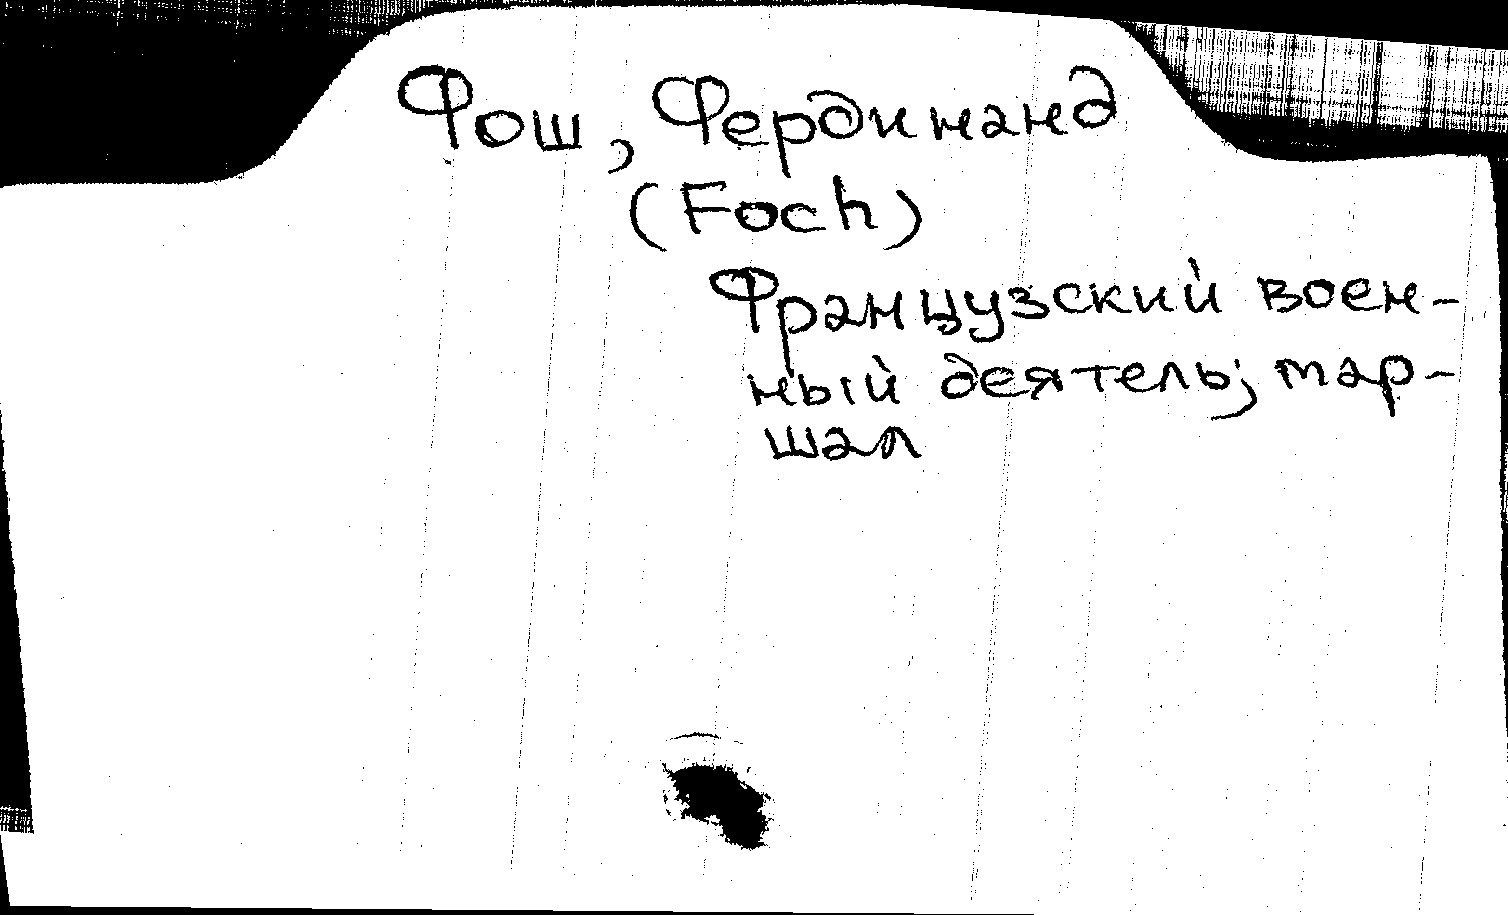 Фош, Фердинанд
(Foch)
Французский воен-
ный деятель; мар-
шал